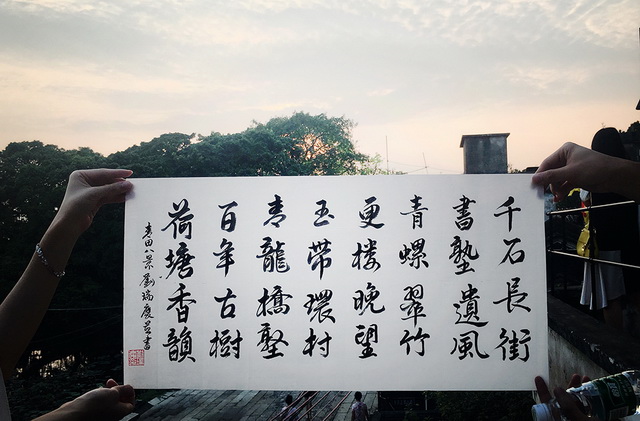 千石長街
書塾遺風
青螺翠竹
更楼晚望
玉帶環村
青龍橋壑
百年古樹
荷塘香韻
田八景劉瑞慶書